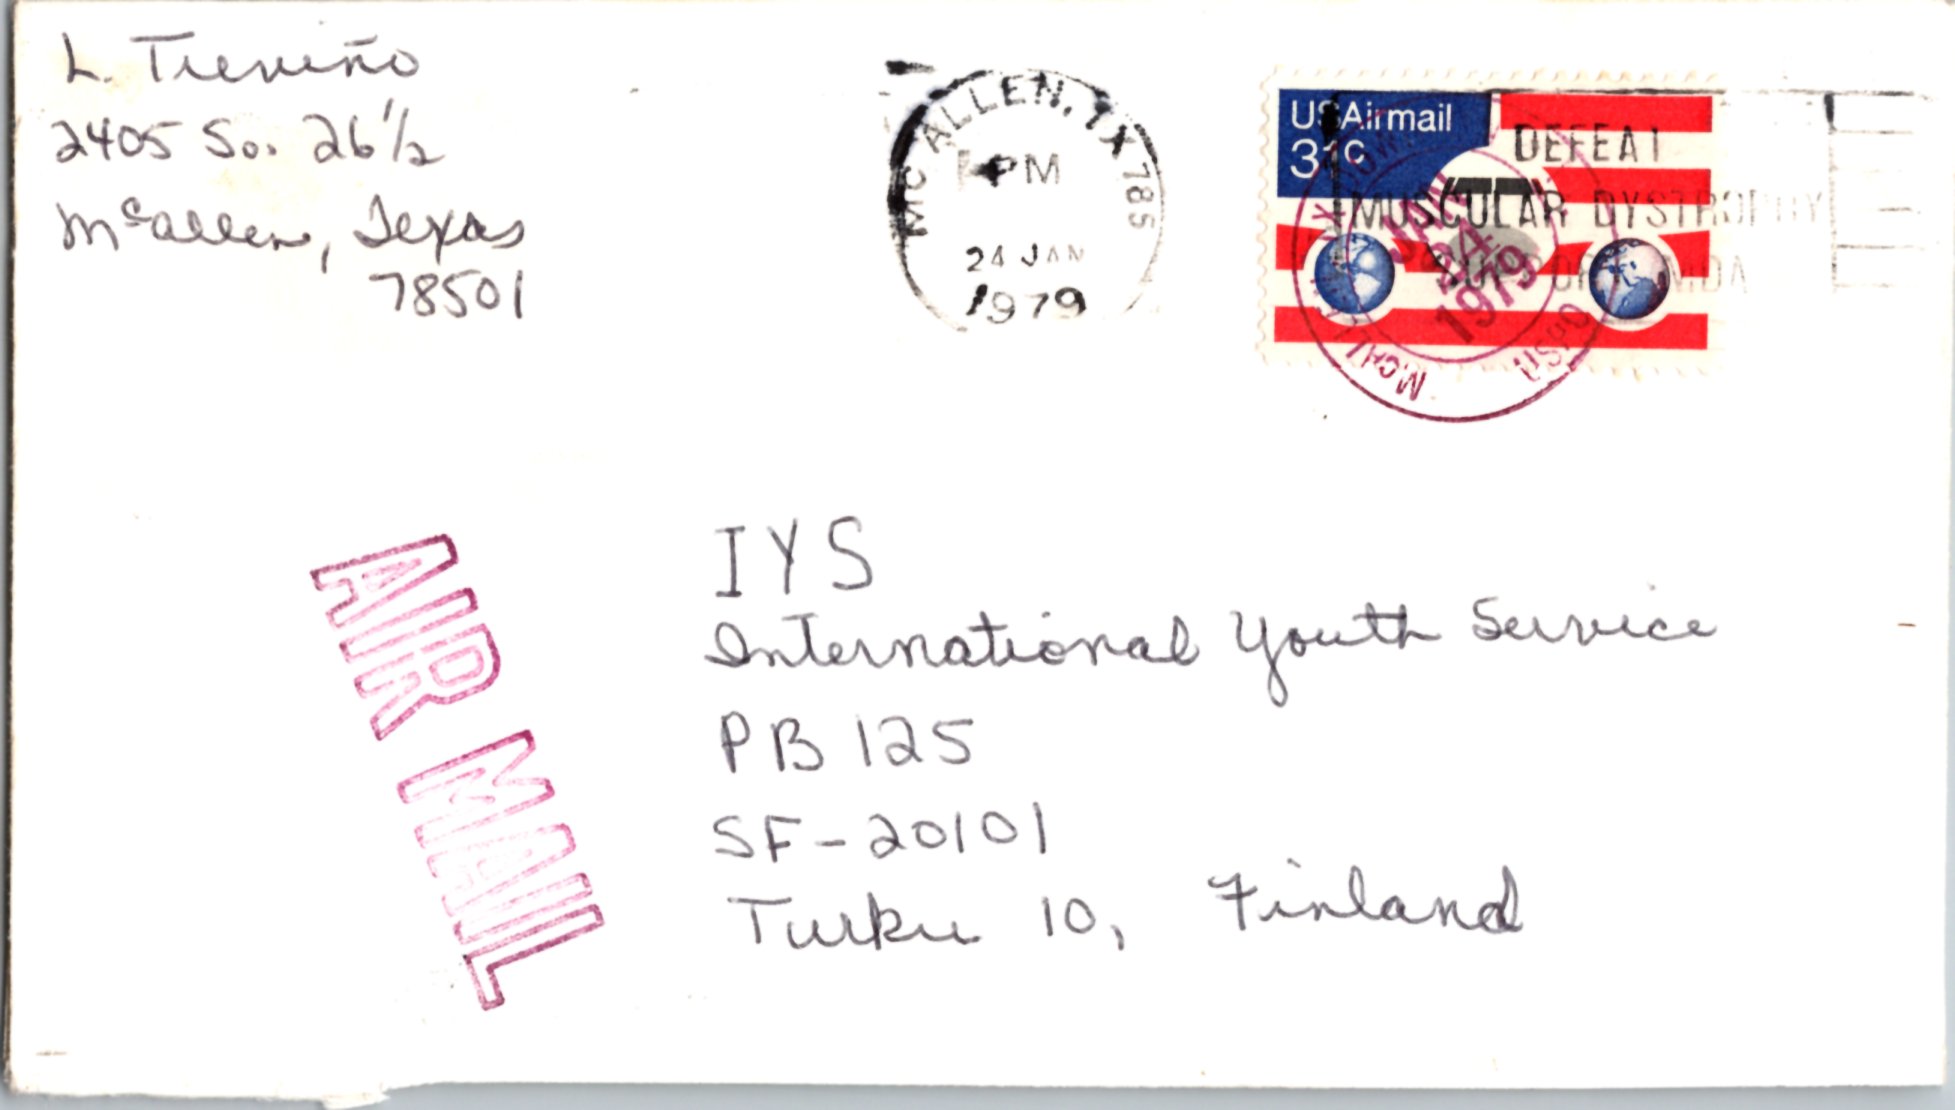 L. Treviño
2405 So. 26 1/2
McAllen, Texas
78501
MC ALLEN, TX 785
PM
24 JAN
1979
USAirmail
31c
DEFEAT
MUSCULAR DYSTROPHY
SUPPORT MDA
JAN
24
1979
USPO
AIR MAIL
IYS
International Youth Service
PB 125
SF-20101
Turku 10, Finland